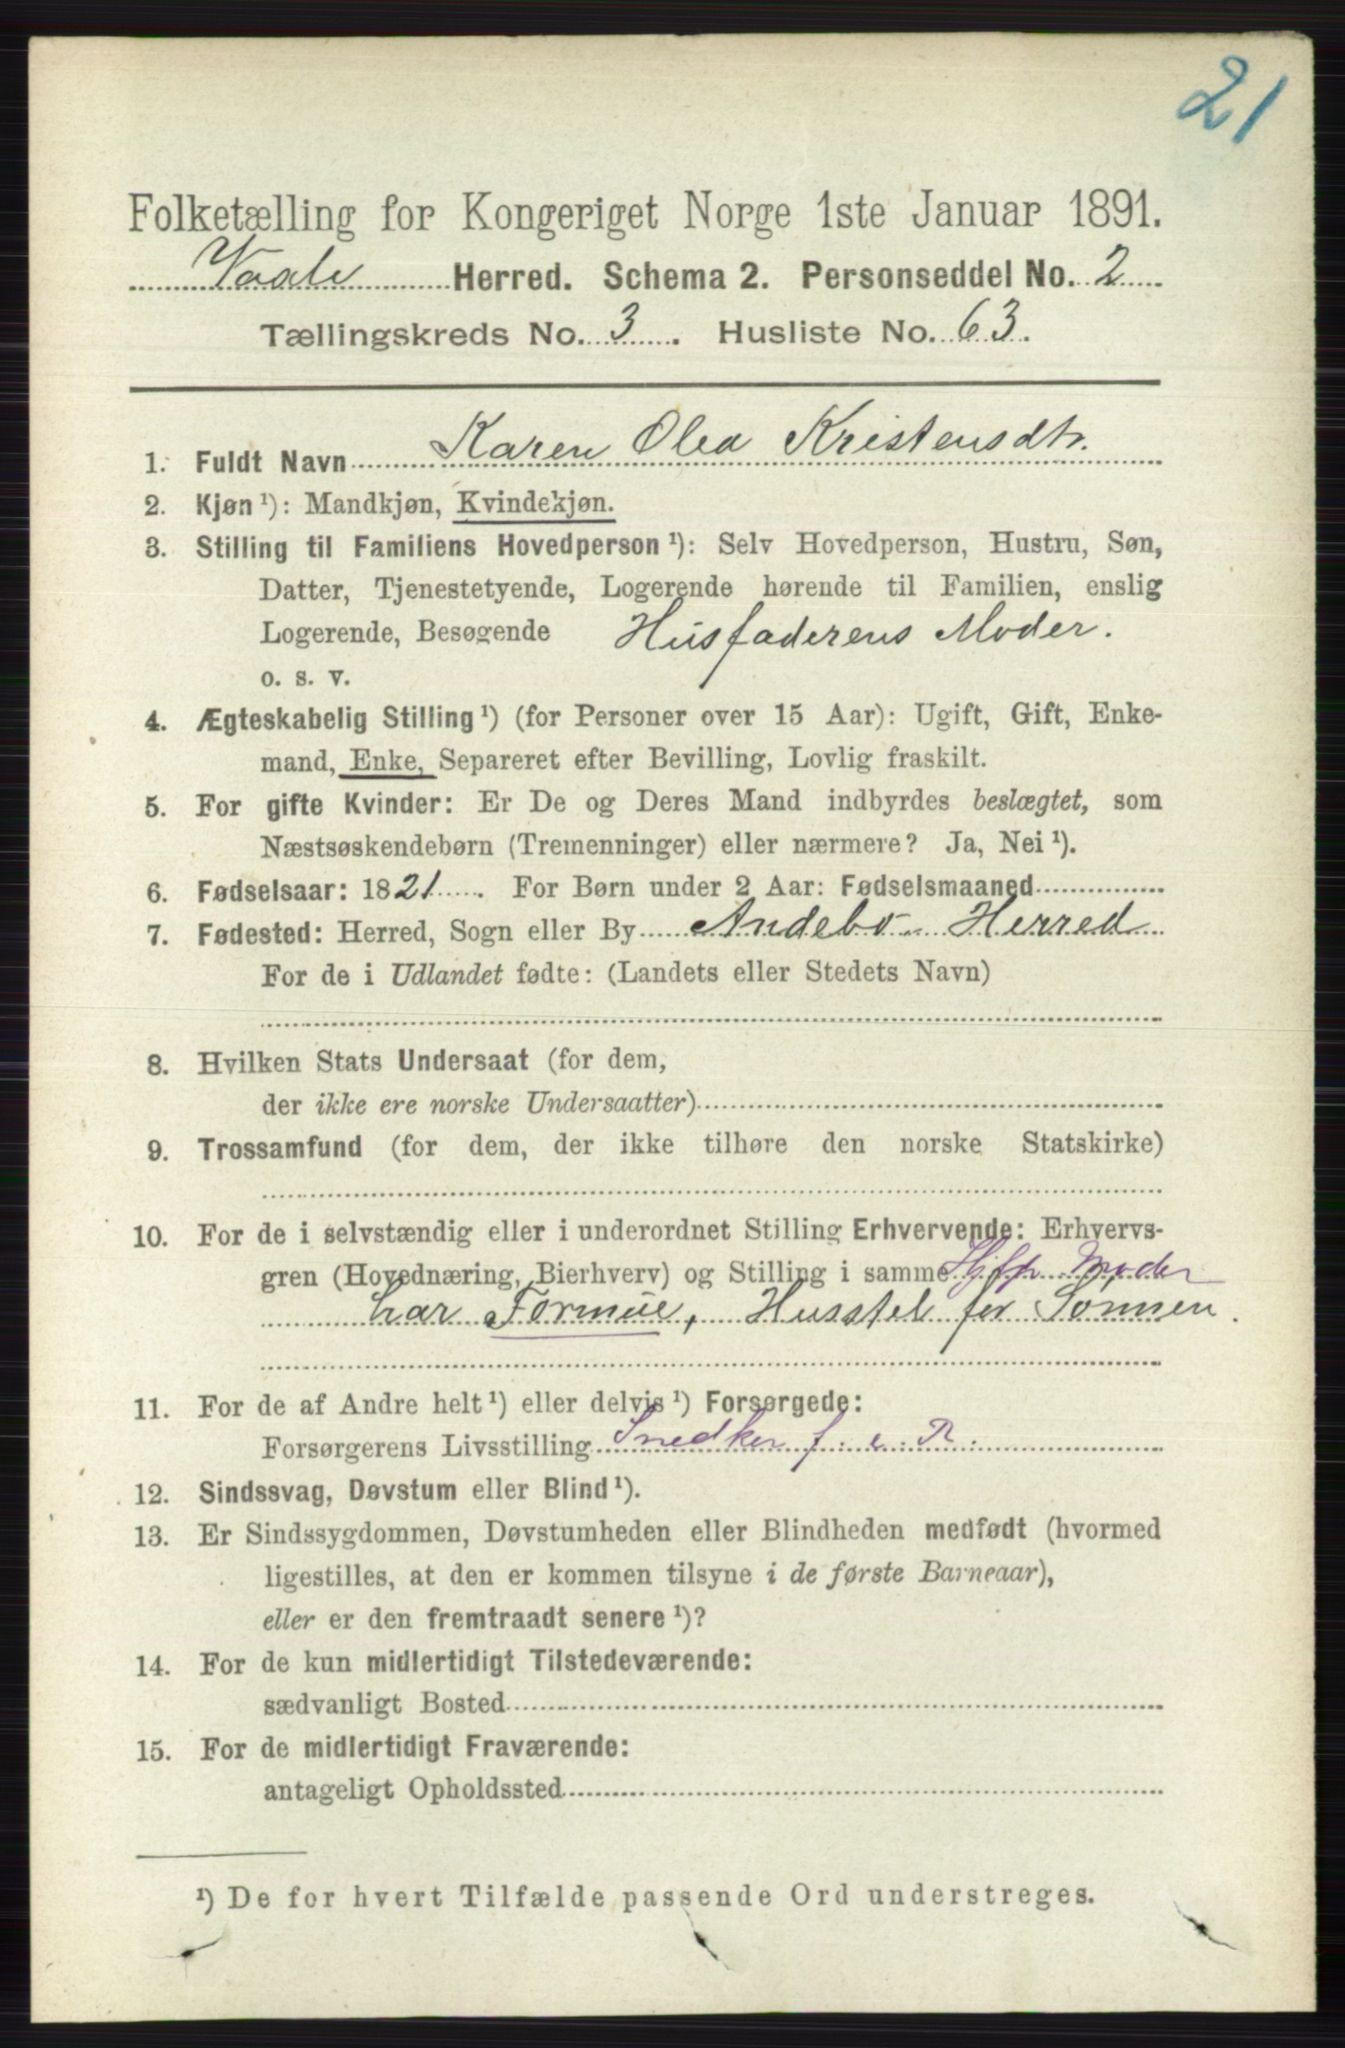 21
Folketælling for Kongeriget Norge 1ste Januar 1891.
Vaale Herred. Schema 2. Personseddel No. 2
Tællingskreds No. 3. Husliste No. 63.
1. Fuldt Navn Karen Olea Kristensdtr.
2. Kjøn ¹): Mandkjøn, Kvindekjøn.
3. Stilling til Familiens Hovedperson ¹): Selv Hovedperson, Hustru, Søn,
Datter, Tjenestetyende, Logerende hørende til Familien, enslig
Logerende, Besøgende Husfaderens Moder.
o. s. v.
4. Ægteskabelig Stilling ¹) (for Personer over 15 Aar): Ugift, Gift, Enke-
mand, Enke, Separeret efter Bevilling, Lovlig fraskilt.
5. For gifte Kvinder: Er De og Deres Mand indbyrdes beslægtet, som
Næstsøskendebørn (Tremenninger) eller nærmere? Ja, Nei ¹).
6. Fødselsaar: 1821. For Børn under 2 Aar: Fødselsmaaned
7. Fødested: Herred, Sogn eller By Andebo Herred
For de i Udlandet fødte: (Landets eller Stedets Navn)
8. Hvilken Stats Undersaat (for dem,
der ikke ere norske Undersaatter)
9. Trossamfund (for dem, der ikke tilhøre den norske Statskirke)
10. For de i selvstændig eller i underordnet Stilling Erhvervende: Erhvervs-
gren (Hovednæring, Bierhverv) og Stilling i samme Moder
har Formue, Husstel for Sønnen.
11. For de af Andre helt ¹) eller delvis ¹) Forsørgede:
Forsørgerens Livsstilling Snedker f. e. R.
12. Sindssvag, Døvstum eller Blind ¹).
13. Er Sindssygdommen, Døvstumheden eller Blindheden medfødt (hvormed
ligestilles, at den er kommen tilsyne i de første Barneaar),
eller er den fremtraadt senere ¹)?
14. For de kun midlertidigt Tilstedeværende:
sædvanligt Bosted
15. For de midlertidigt Fraværende:
antageligt Opholdssted
¹) De for hvert Tilfælde passende Ord understreges.